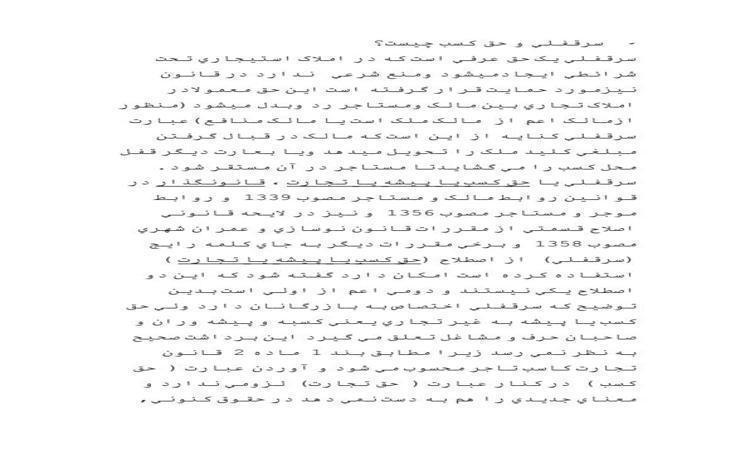 - سرقفلي و حق كسب چيست؟
سرقفلي يک حق عرفي است که در املاک استيجاري تحت
شرائطي ايجادميشود ومنع شرعي ندارد در قانون
نيزمورد حمايت قرار گرفته است اين حق معمولادر
املاک تجاري بين مالک ومستاجر رد وبدل ميشود (منظور
ازمالک اعم از مالک ملک است يا مالک منافع) عبارت
سرقفلي کنايه از اين است که مالک در قبال گرفتن
مبلغي کليد ملک را تحويل ميدهد ويا بعبارت ديگر قفل
محل کسب را مي گشايدتا مستاجر در آن مستقر شود .
سرقفلي يا حق کسب يا پيشه يا تجارت . قانونگذار در
قوانين روابط مالک و مستاجر مصوب 1339 و روابط
موجر و مستاجر مصوب 1356 و نيز در لايحه قانوني
اصلاح قسمتي از مقررات قانون نوسازي و عمران شهري
مصوب 1358 و برخي مقررات ديگر به جاي کلمه رايج
(سرقفلي) از اصطلاح (حق کسب يا پيشه يا تجارت )
استفاده کرده است امکان دارد گفته شود که اين دو
اصطلاح يکي نيستند و دومي اعم از اولي است بدين
توضيح که سرقفلي اختصاص به بازرگانان دارد ولي حق
کسب يا پيشه به غير تجاري يعني کسبه و پيشه وران و
صاحبان حرف و مشاغل تعلق مي گيرد اين برداشت صحيح
به نظر نمي رسد زيرا مطابق بند 1 ماده 2 قانون
تجارت کاسب تاجر محسوب مي شود و آوردن عبارت ( حق
کسب ) در کنار عبارت ( حق تجارت) لزومي ندارد و
معناي جديدي را هم به دست نمي دهد در حقوق کنوني,